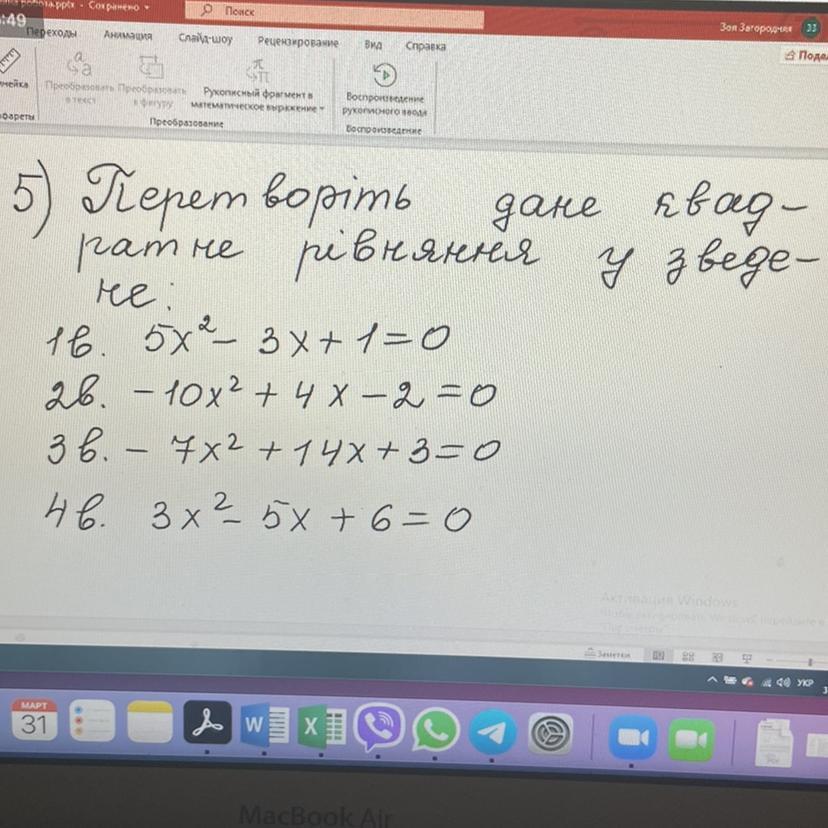 :49
.pptx - Сохранено
Поиск
Зоя Загородняя
33
Переходы Анимация Слайд-шоу Рецензирование Вид Справка
Преобразовать в текст
Преобразовать в фигуру
Рукописный фрагмент в математическое выражение
Воспроизведение рукописного ввода
Преобразование
Воспроизведение
5) Перетворіть дане квад-
ратне рівняння у зведе-
не:
1в. 5x² - 3x + 1 = 0
2в. - 10x² + 4x - 2 = 0
3в. - 7x² + 14x + 3 = 0
4в. 3x² - 5x + 6 = 0
Активация Windows
Заметки
УКР
МАРТ
31
W
X
MacBook Air